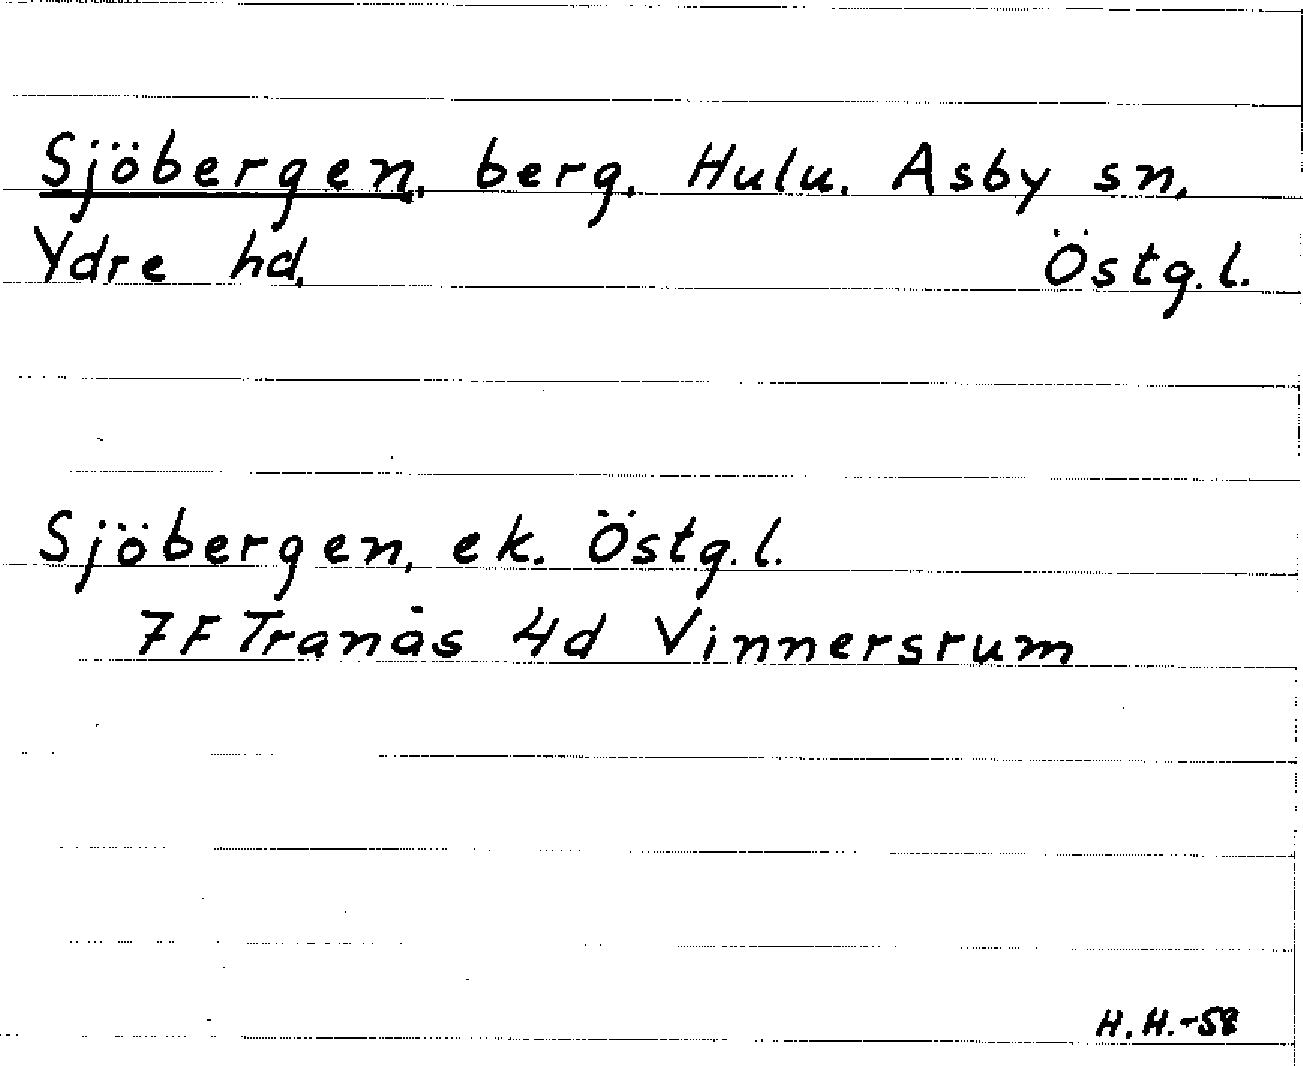 Sjöbergen, berg, Hulu. Asby sn,
Ydre hd, Östg.l.
Sjöbergen, ek. Östg.l.
7F Tranås 4d Vinnersrum
H.H.-58